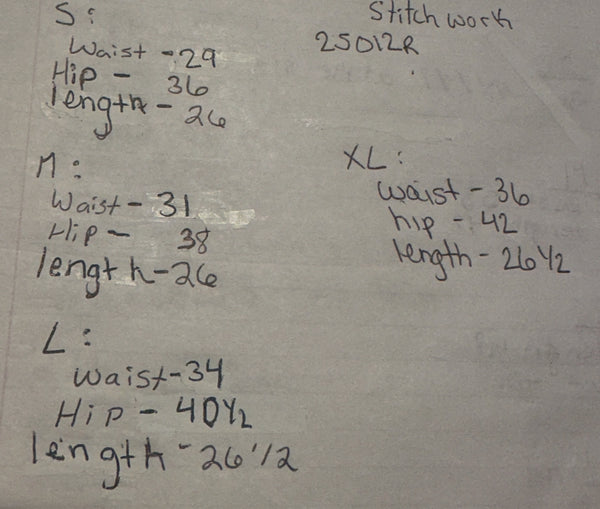 S:
Waist - 29
Hip - 36
length - 26
Stitch work
25012R
M:
Waist - 31
Hip - 38
length - 26
XL:
waist - 36
hip - 42
length - 26 1/2
L:
waist - 34
Hip - 40 1/2
length - 26 1/2